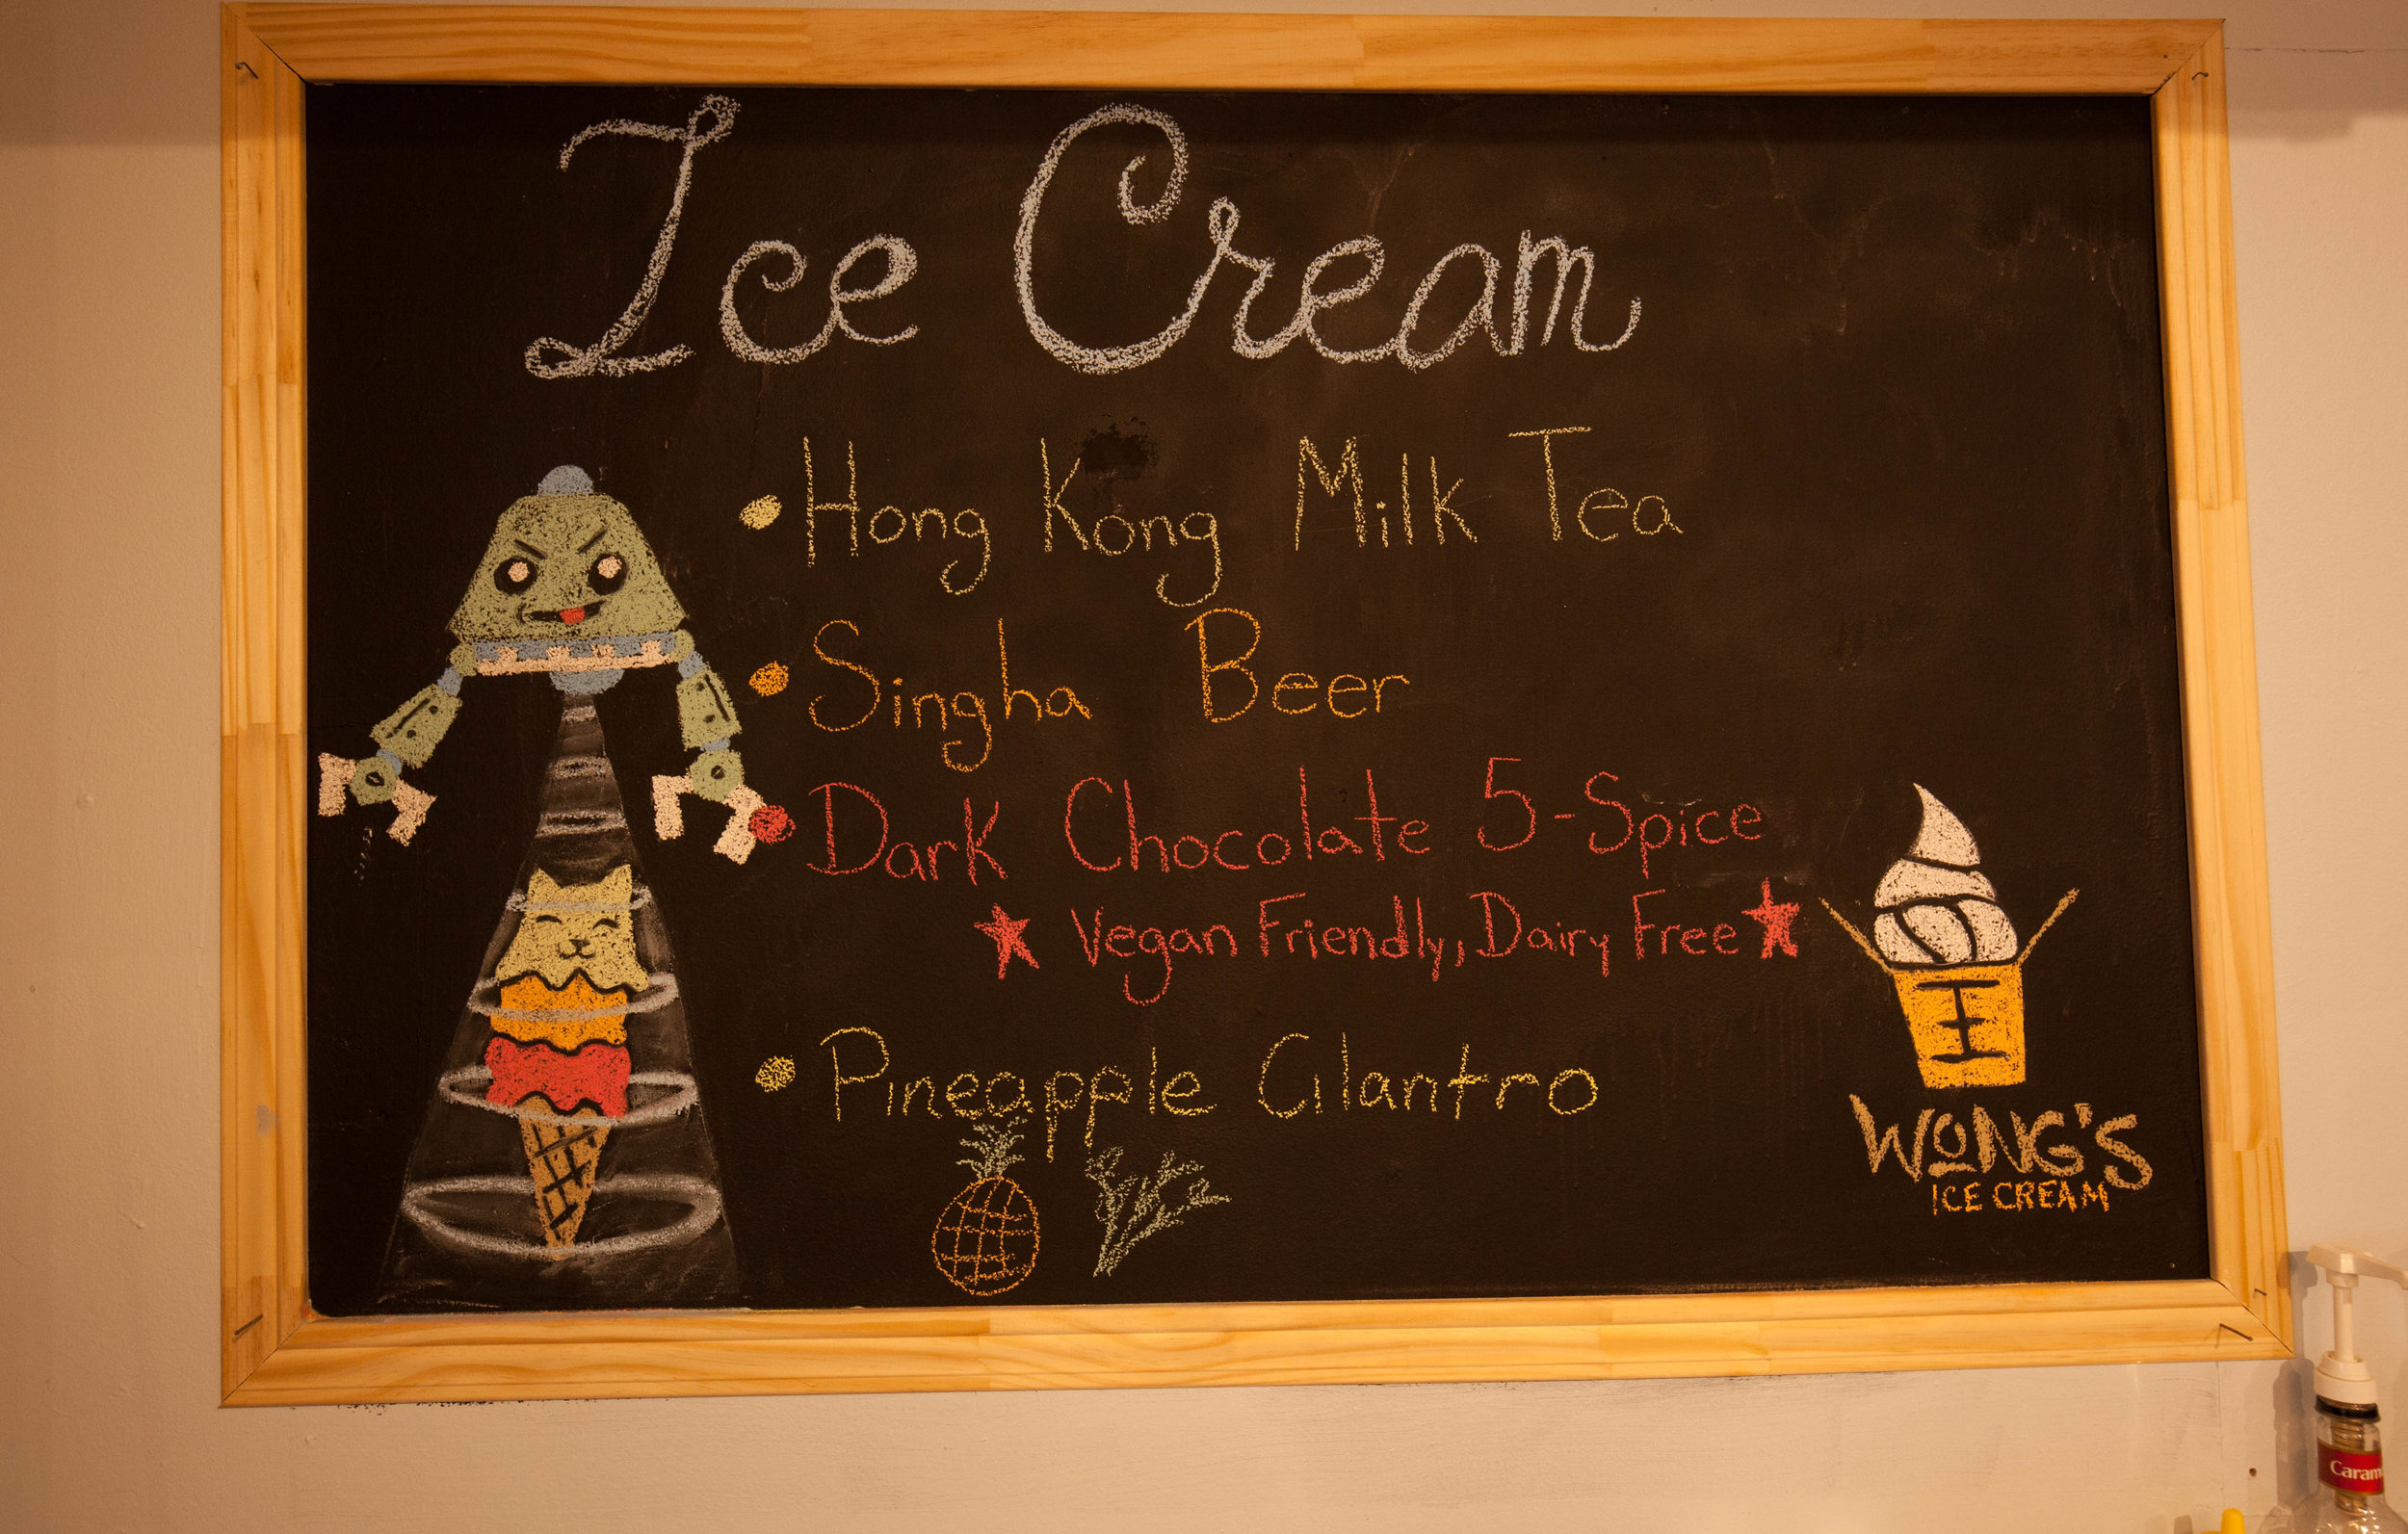 Ice Cream
Hong Kong Milk Tea
Singha Beer
Dark Chocolate 5-Spice
Vegan Friendly, Dairy Free
Pineapple Cilantro
王
WONG'S
ICE CREAM
Caram